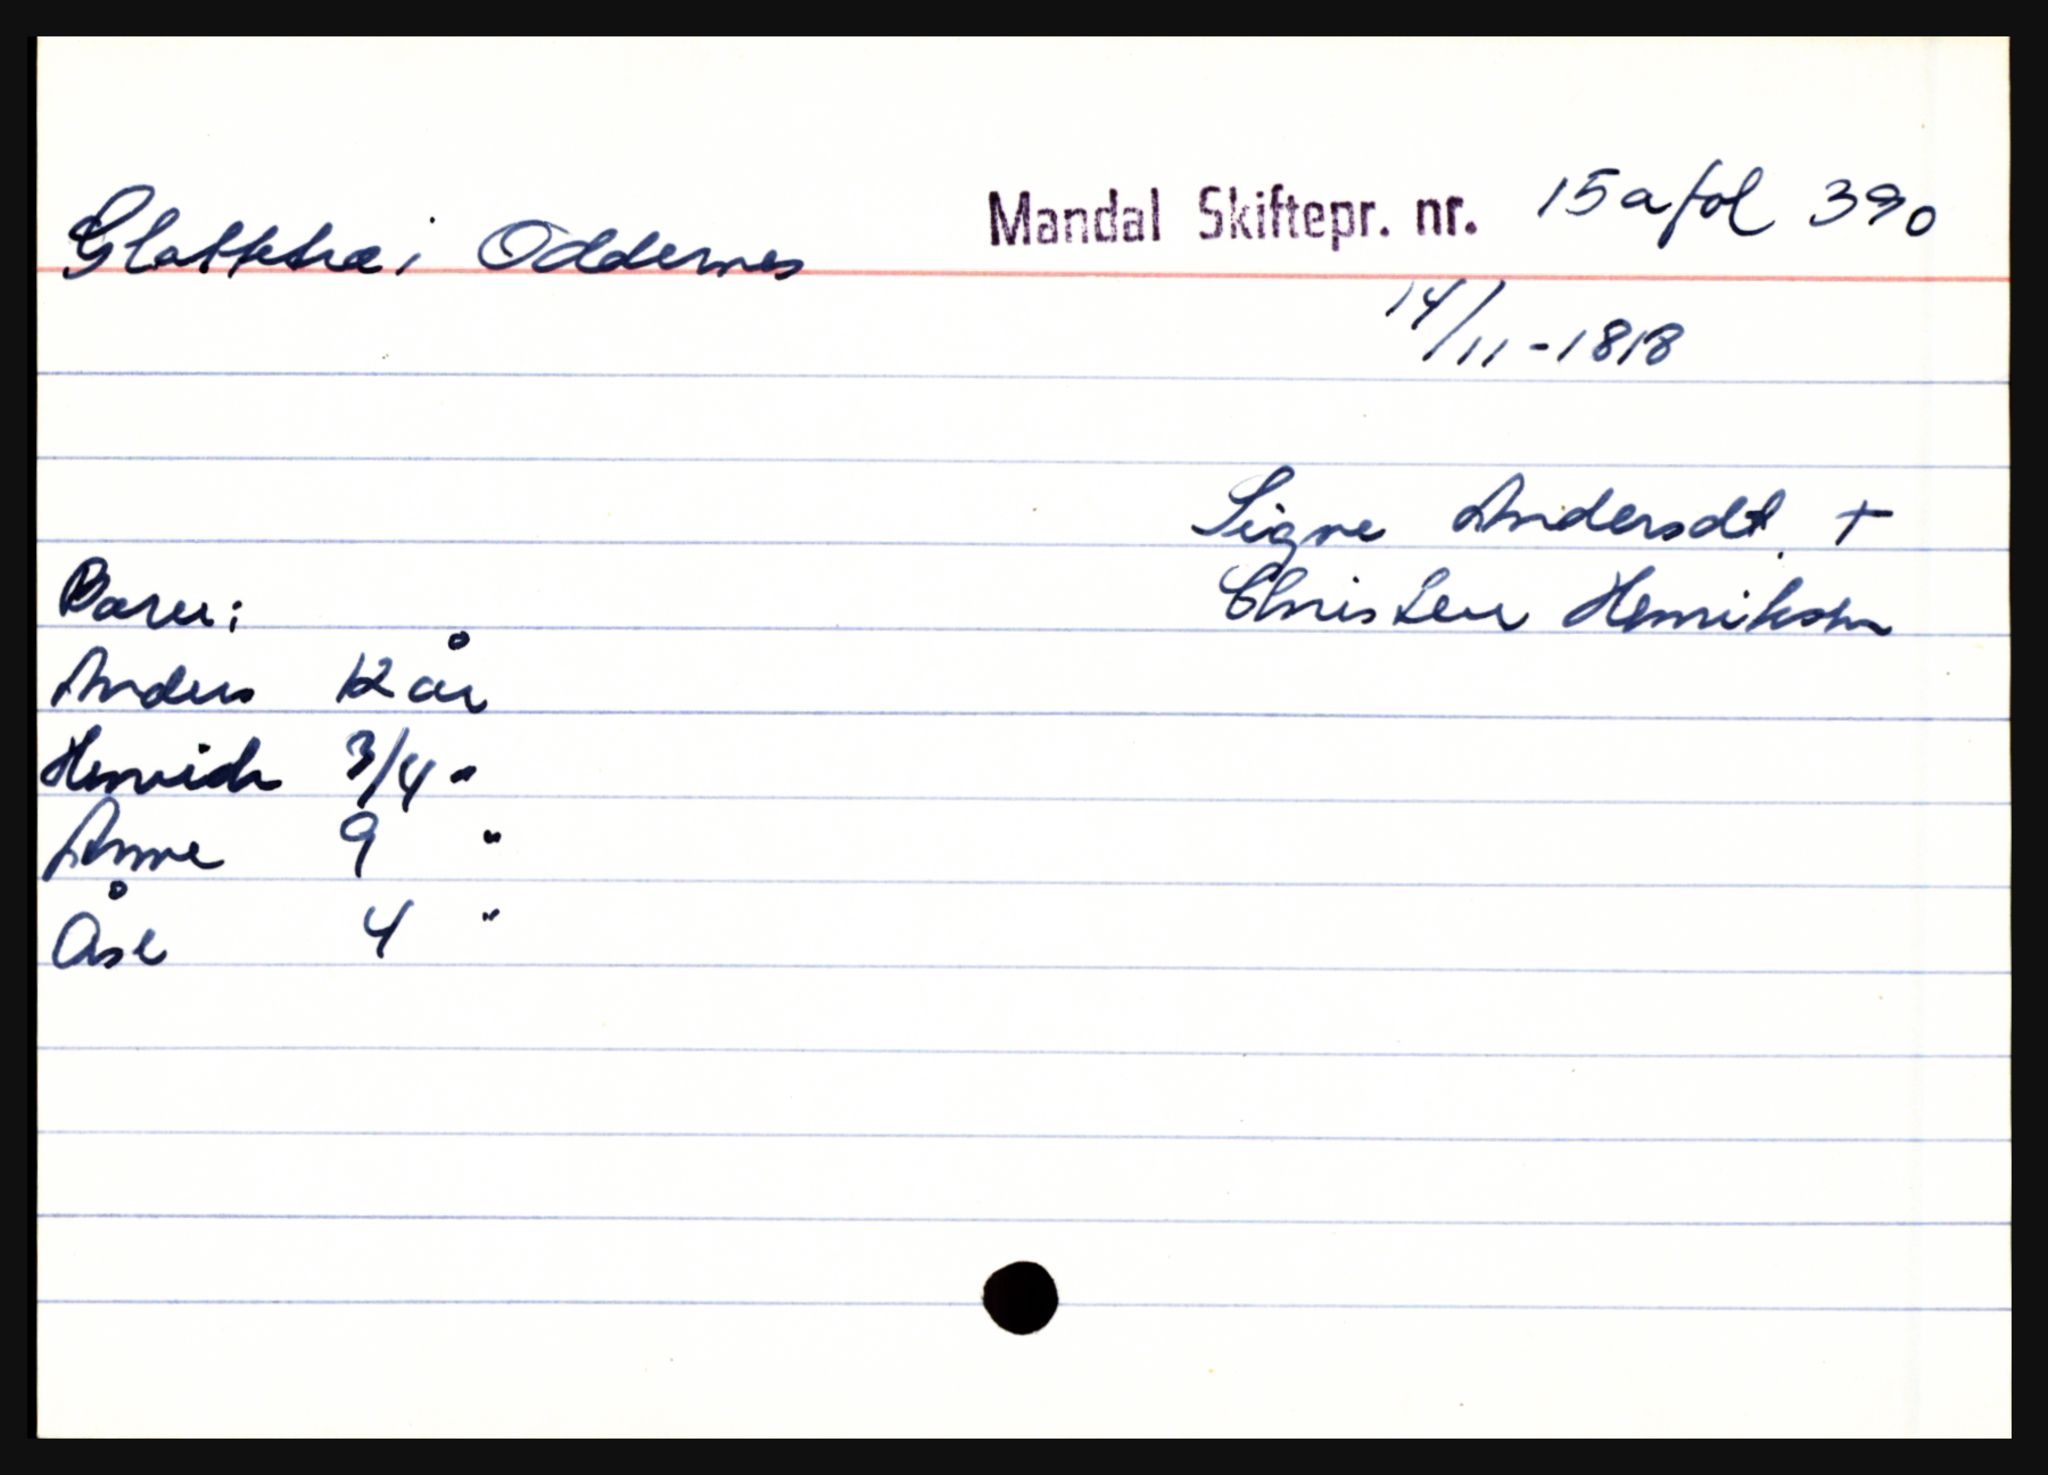 Glattetræ i Oddernes Mandal Skiftepr. nr. 15a fol 390
14/11-1818
Signe Andersdt. +
Christen Henriksen
Barn:
Anders 12 år
Henrich 3/4 "
Anne 9 "
Åse 4 "